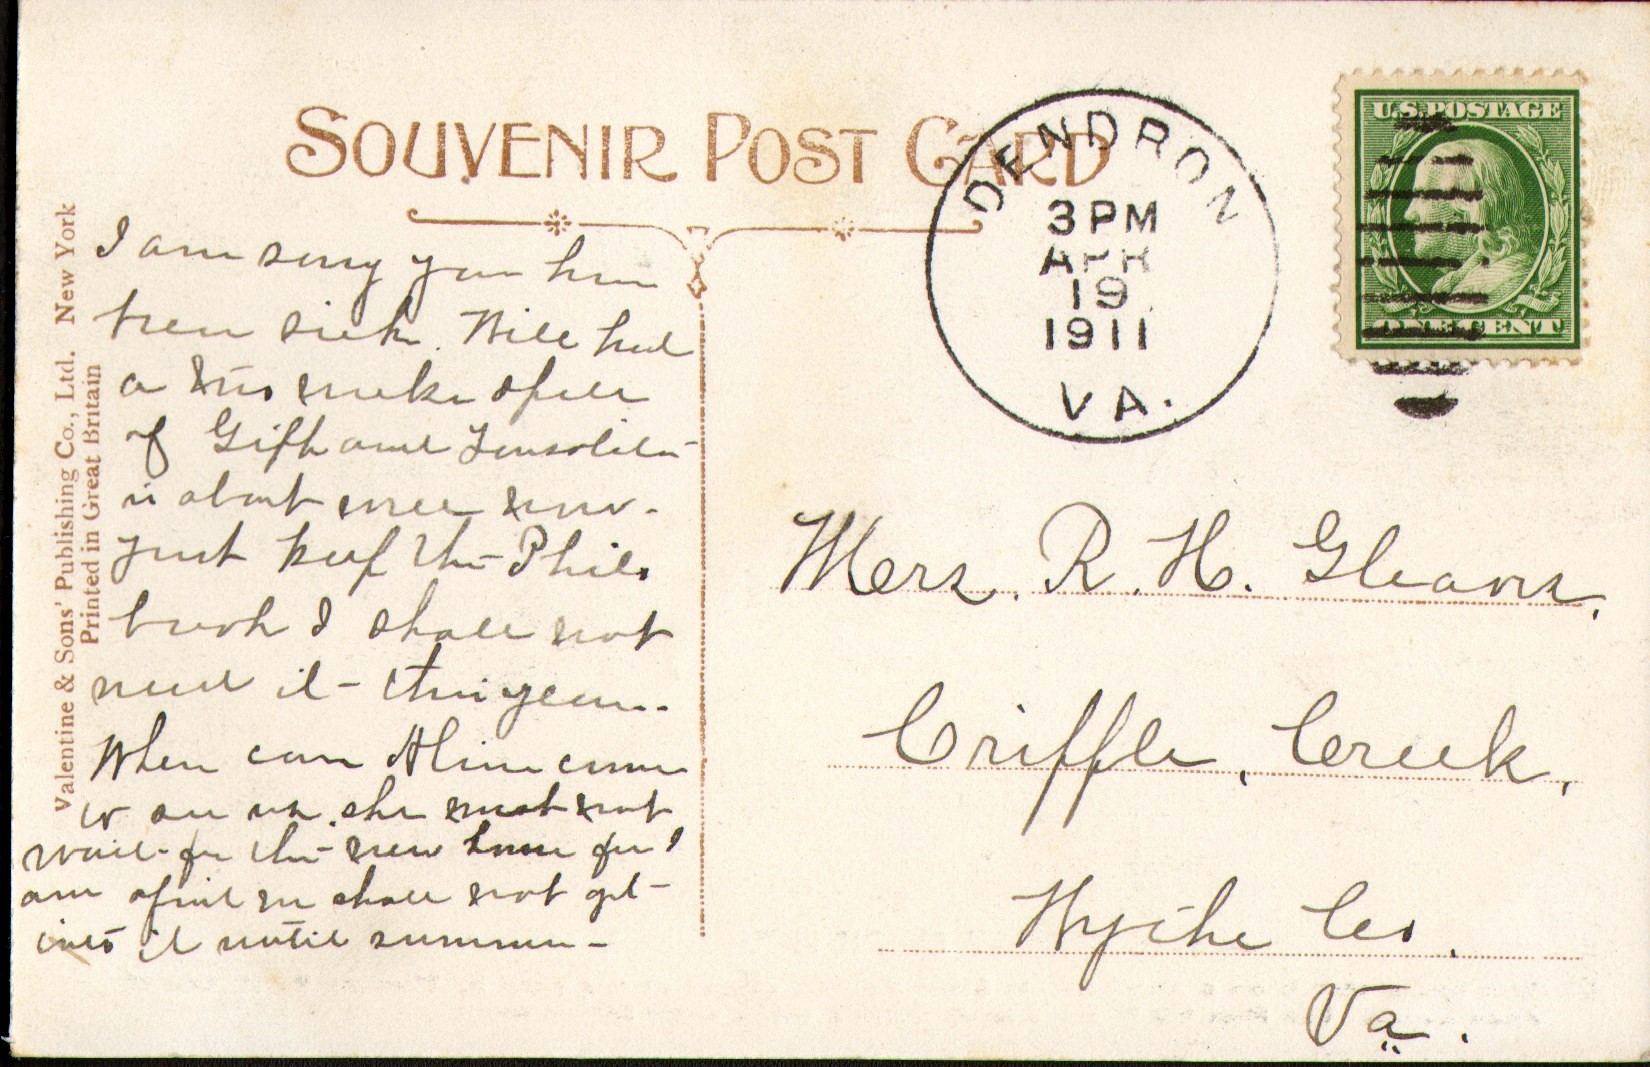 SOUVENIR POST CARD
DENDRON
3 PM
APR
19
1911
VA.
U.S. POSTAGE
ONE CENT
Valentine & Sons' Publishing Co., Ltd. New York
Printed in Great Britain
I am sorry you have
been sick. Will had
a two weeks spell
of Gift and
is about well now.
Just keep the Phil.
book I shall not
need it - this year.
When can Aline come
to see us. she must not
wait - for the new house for I
am afraid we shall not get -
into it until summer -
Mers. R. H. Gleaves.
Criffle, Creek,
Wythe Co.
Va.